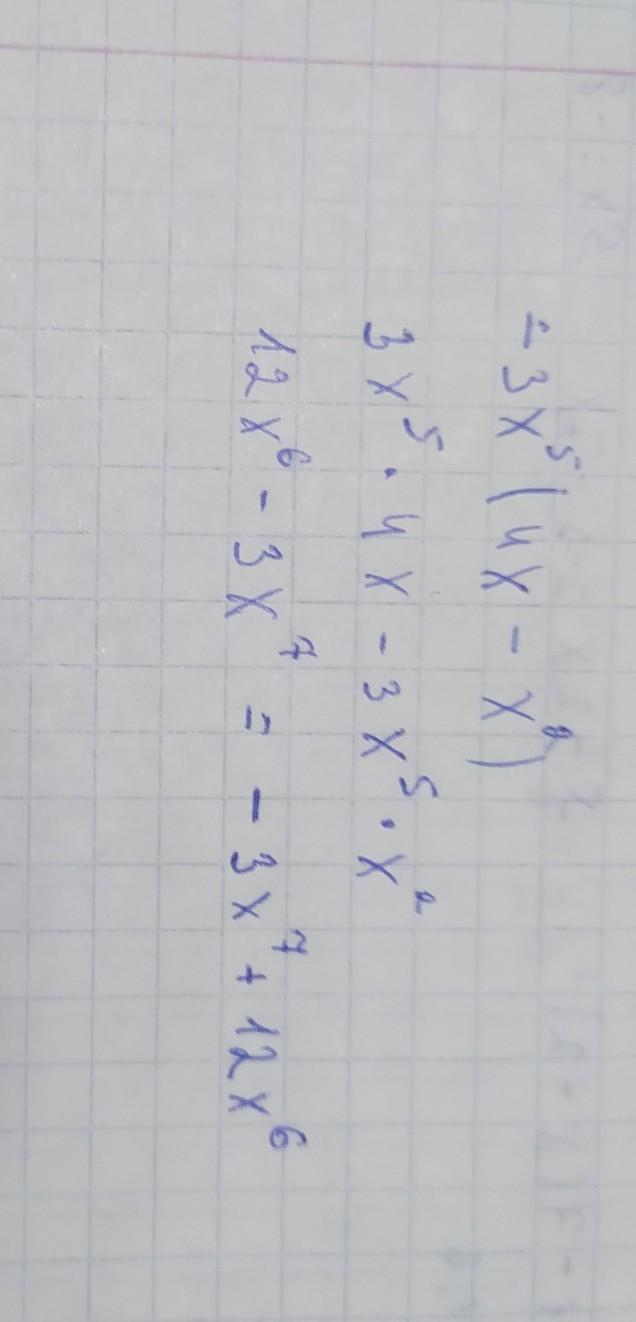 = 3x⁵(4x - x²)
3x⁵ · 4x - 3x⁵ · x²
12x⁶ - 3x⁷ = - 3x⁷ + 12x⁶